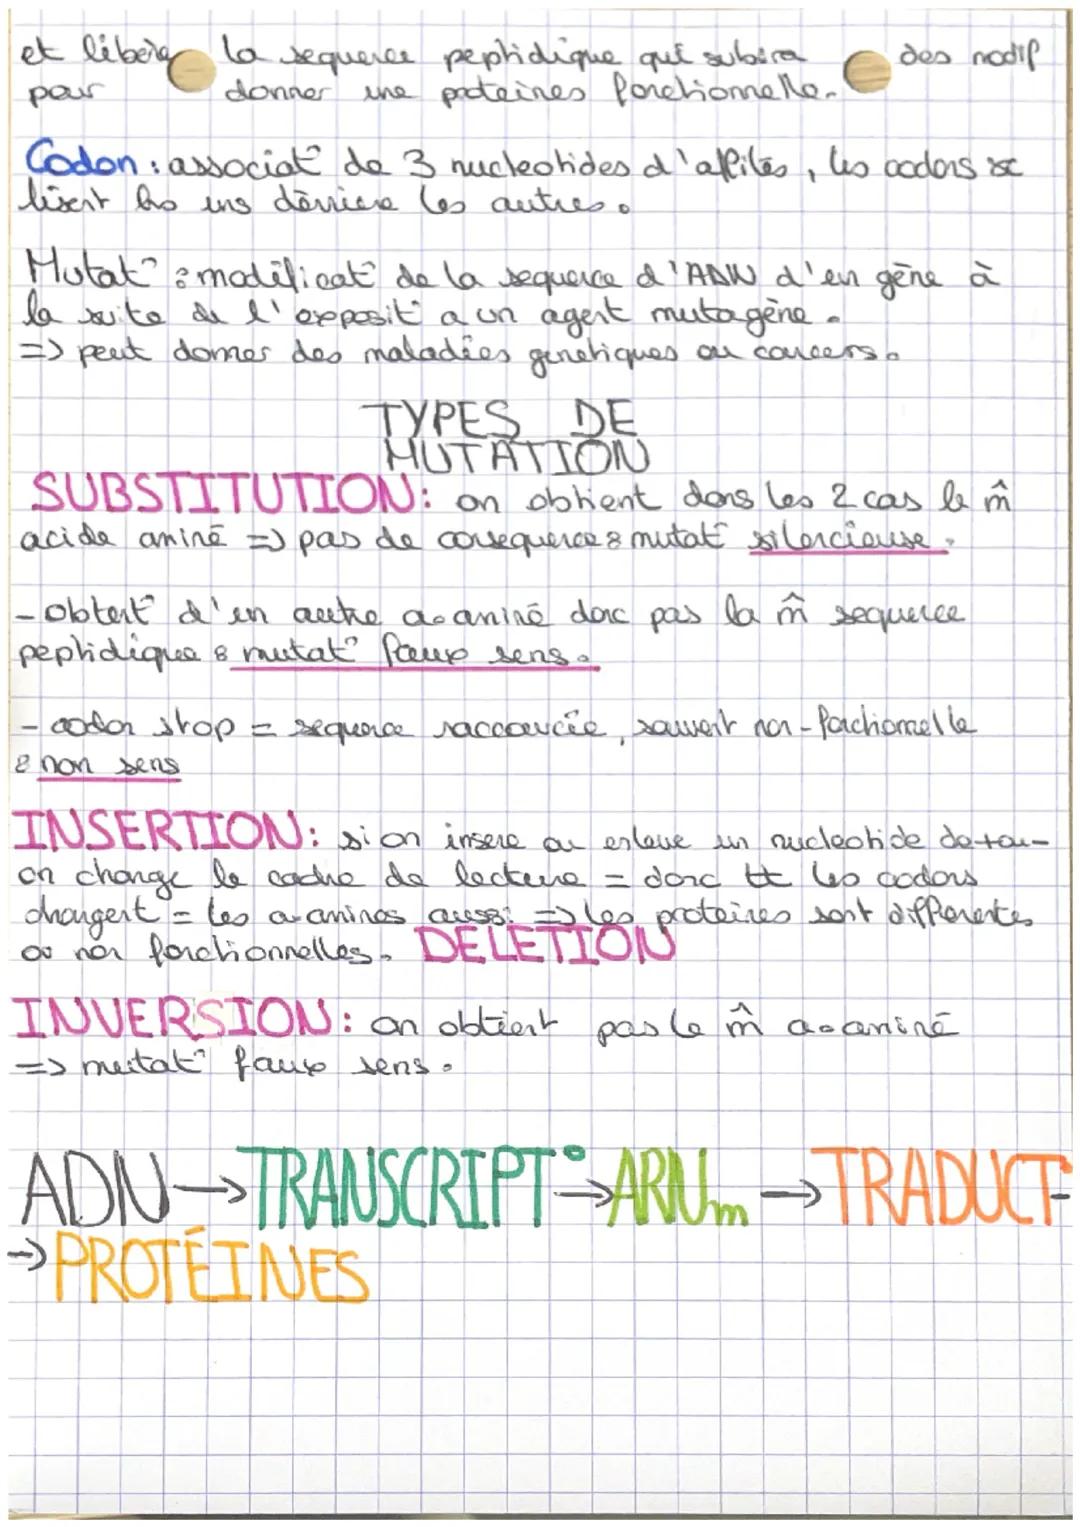 et libère la sequence peptidique qui subira des modif
pour donner une proteines fonctionnelle.
Codon : associat° de 3 nucleotides d'affilés, les codons se
lisent les uns dérriere les autres.
Mutat° : modificat° de la sequence d'ADN d'un gène à
la suite de l'exposit° a un agent mutagène.
=> peut donner des maladies genetiques ou cancers.
TYPES DE
MUTATION
SUBSTITUTION: on obtient dans les 2 cas le m̂
acide aminé => pas de consequences : mutat° silencieuse.
- obtent° d'un autre a.aminé donc pas la m̂ sequence
peptidique : mutat° faux sens.
- codon stop = sequence raccourcie, souvent non-fonctionnelle
: non sens
INSERTION: si on insere ou enleve un nucleotide de+ou-
on change le cadre de lecture = donc tt les codons
changent = les a.aminés aussi => les proteines sont differentes
ou non fonctionnelles. DELETION
INVERSION: on obtient pas le m̂ a.aminé
=> mutat° faux sens.
ADN → TRANSCRIPT° → ARNm → TRADUCT°
→ PROTÉINES